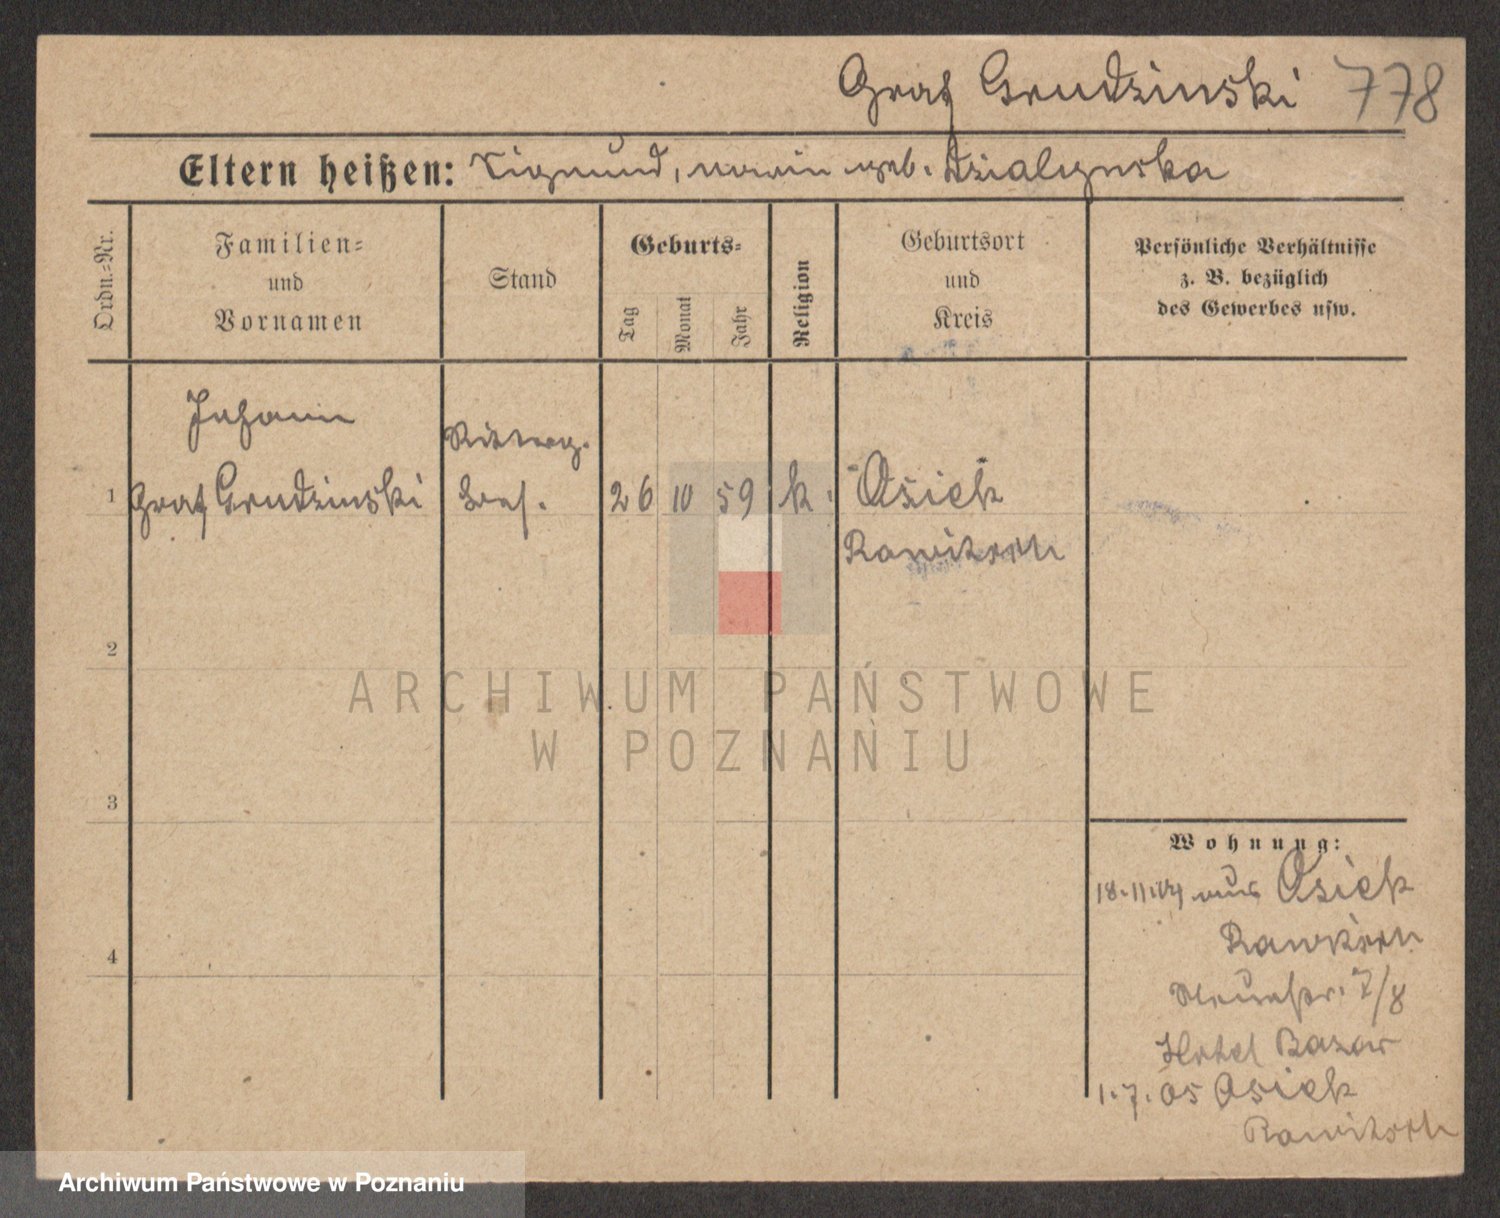 Graf Grudzinski 778
Eltern heißen: Sigmund, Marie geb. Dzialynska
Ordn.-Nr.
Familien-
und
Vornamen
Stand
Geburts-
Tag
Monat
Jahr
Religion
Geburtsort
und
Kreis
Persönliche Verhältnisse
z. B. bezüglich
des Gewerbes usw.
Johann
Ritterg.
1 Graf Grudzinski Bes. 26 10 59 k. Osiek
Rawitsch
2
ARCHIWUM PAŃSTWOWE
W POZNANIU
3
Wohnung:
18.11.04 aus Osiek
Rawitsch
4
Neuestr. 7/8
Hotel Bazar
1.7.05 Osiek
Rawitsch
Archiwum Państwowe w Poznaniu